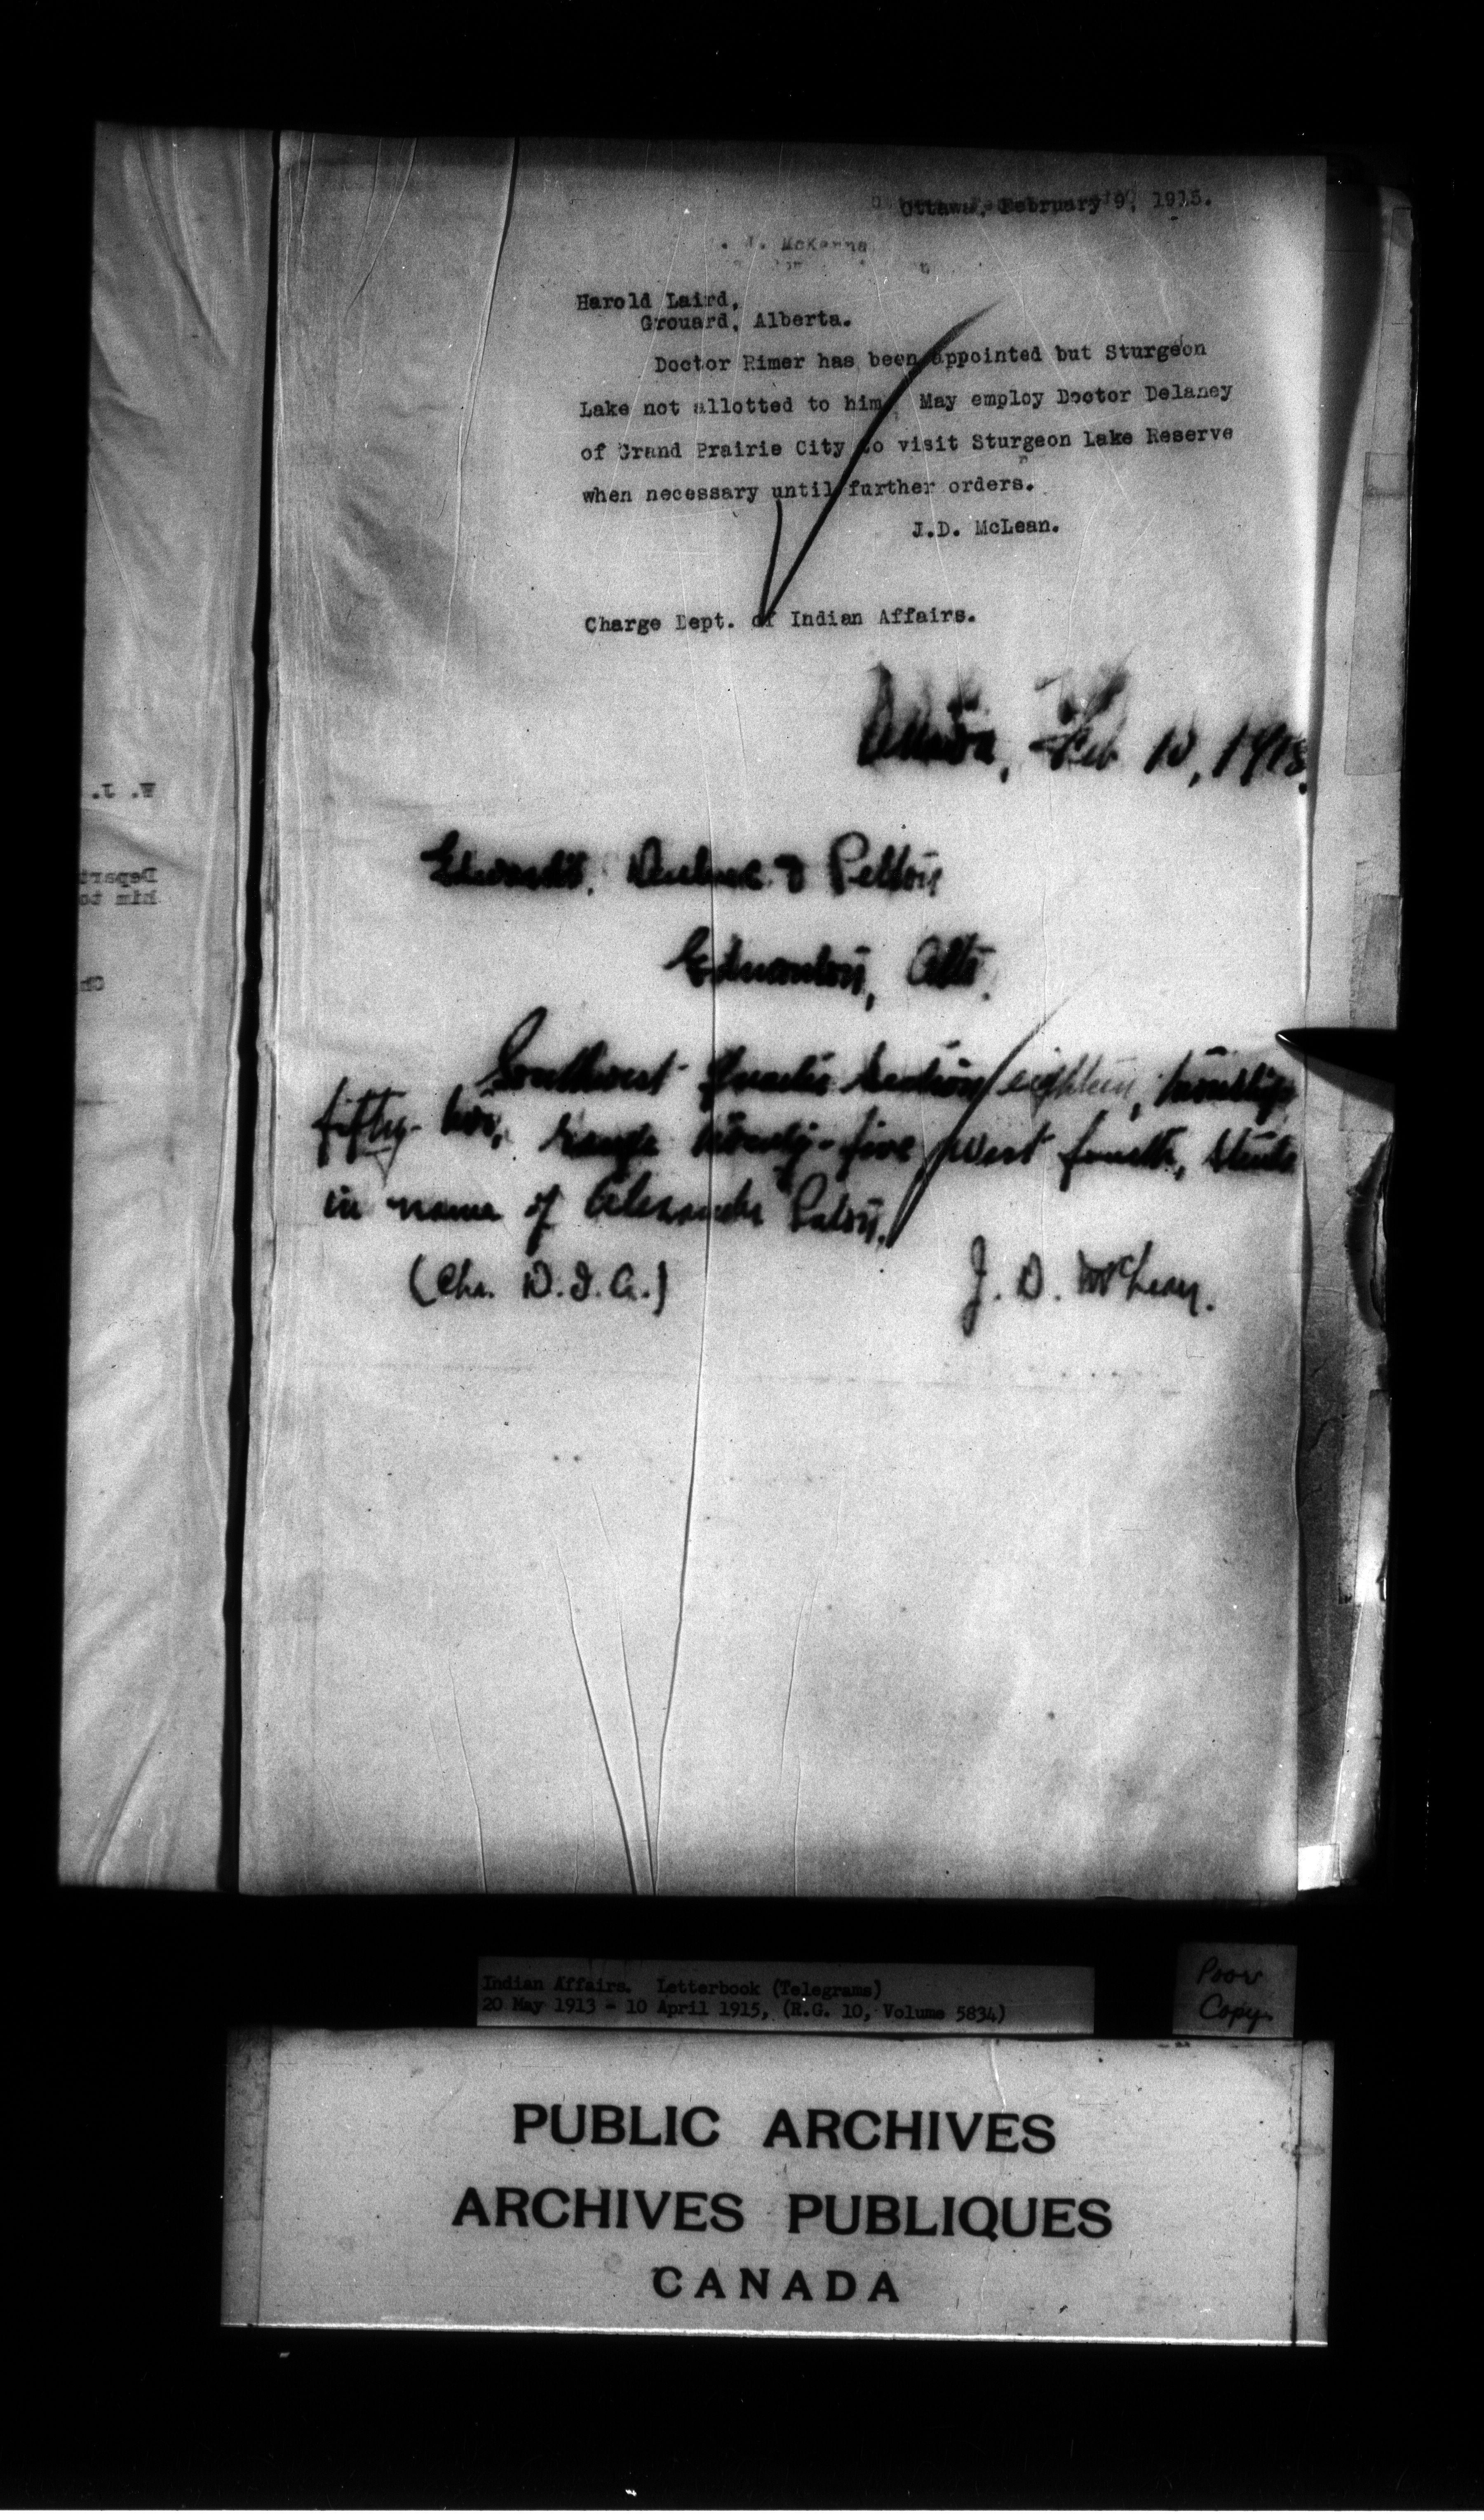 Ottawa, February 9, 1915.
McKenna
Harold Laird,
Grouard, Alberta.
Doctor Rimer has been appointed but Sturgeon
Lake not allotted to him. May employ Doctor Delaney
of Grand Prairie City to visit Sturgeon Lake Reserve
when necessary until further orders.
J.D. McLean.
Charge Dept. of Indian Affairs.
Ottawa, Feb 10, 1915.
Edwards, & Pelton
Edmonton, Alta.
Southwest quarter section eighteen, township
fifty-two, range twenty-five West fourth, stands
in name of Alexander
(Chr. D.I.A.) J. D. McLean.
W. J.
Depart
him to
Ch
Indian Affairs. Letterbook (Telegrams)
20 May 1913 - 10 April 1915, (R.G. 10, Volume 5834)
Poor
Copy
PUBLIC ARCHIVES
ARCHIVES PUBLIQUES
CANADA